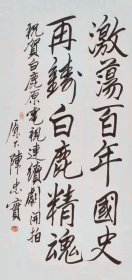 激蕩百年國史
再鑄白鹿精魂
祝賀白鹿原電視連續劇開拍
原下陳忠實